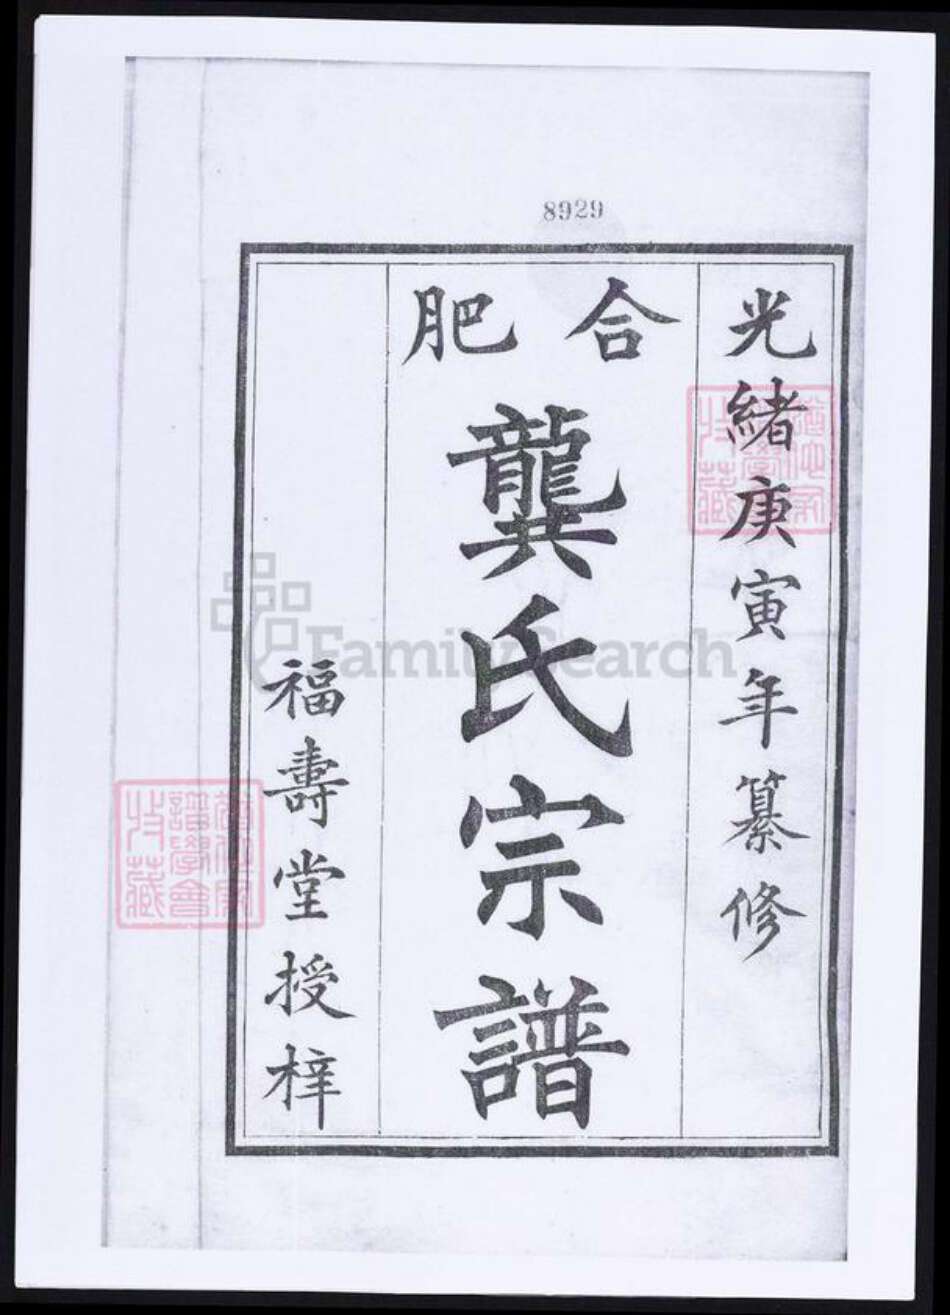 8929
光緒庚寅年纂修
合肥
龔氏宗譜
福壽堂授梓
FamilySearch
譜學會
收藏